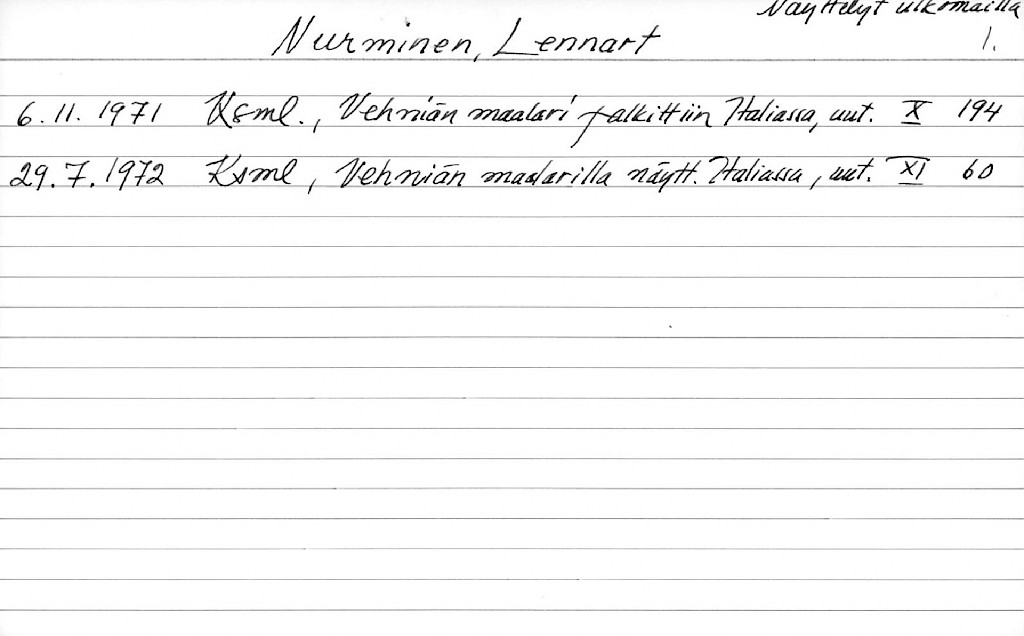 Näyttelyt ulkomailla
Nurminen, Lennart 1.
6.11.1971 Ksml., Vehniän maalari palkittiin Italiassa, uut. X 194
29.7.1972 Ksml, Vehniän maalarilla näytt. Italiassa, uut. XI 60